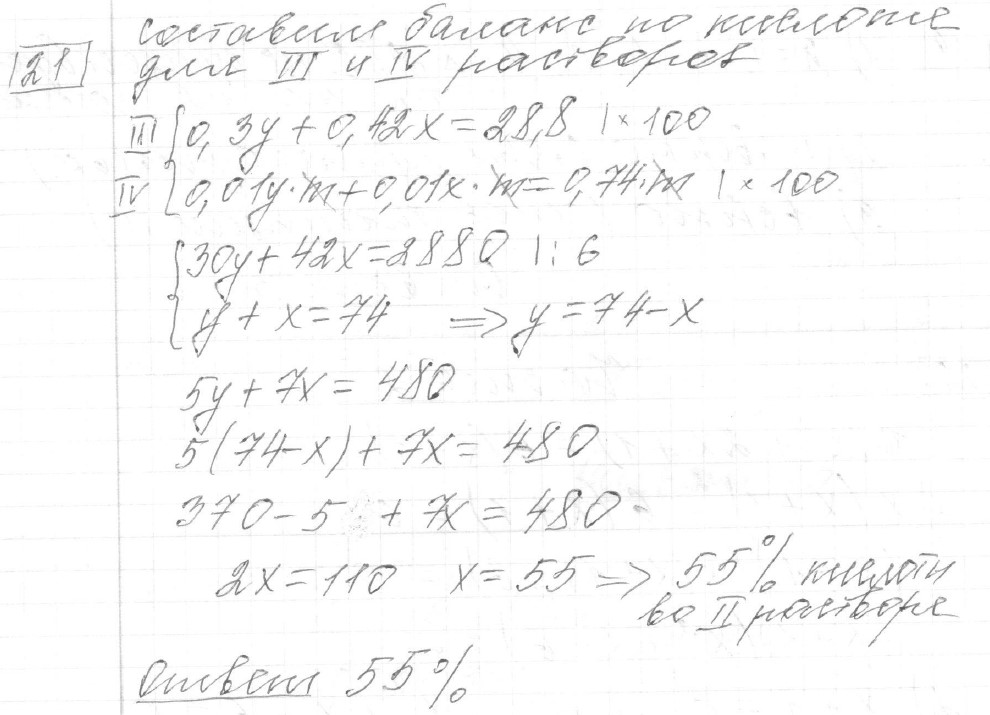 составим баланс по кислоте
21 для III и IV растворов
III { 0,3y + 0,42x = 28,8 | × 100
IV { 0,01y · m + 0,01x · m = 0,74 · m | × 100
{ 30y + 42x = 2880 | : 6
{ y + x = 74 ⇒ y = 74 - x
5y + 7x = 480
5(74 - x) + 7x = 480
370 - 5 + 7x = 480
2x = 110 x = 55 ⇒ 55% кислоты
во II растворе
Ответ 55%